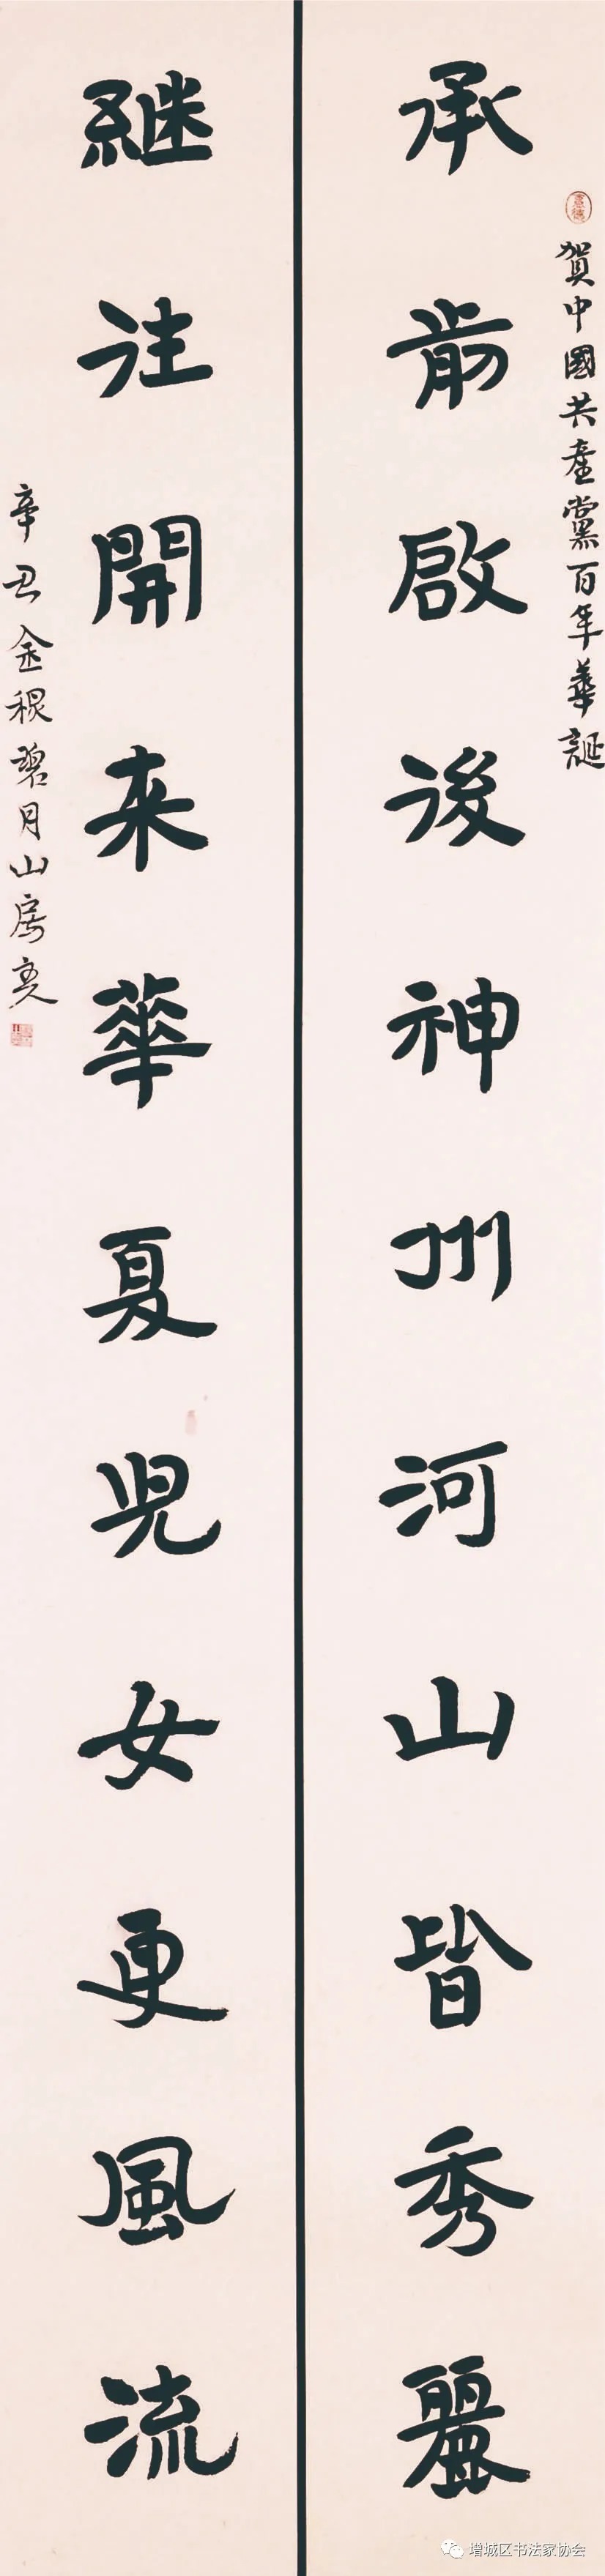 賀中國共產黨百年華誕
承前啟後神州河山皆秀麗
継往開来華夏児女更風流
辛丑金碧月山房
增城区书法家协会